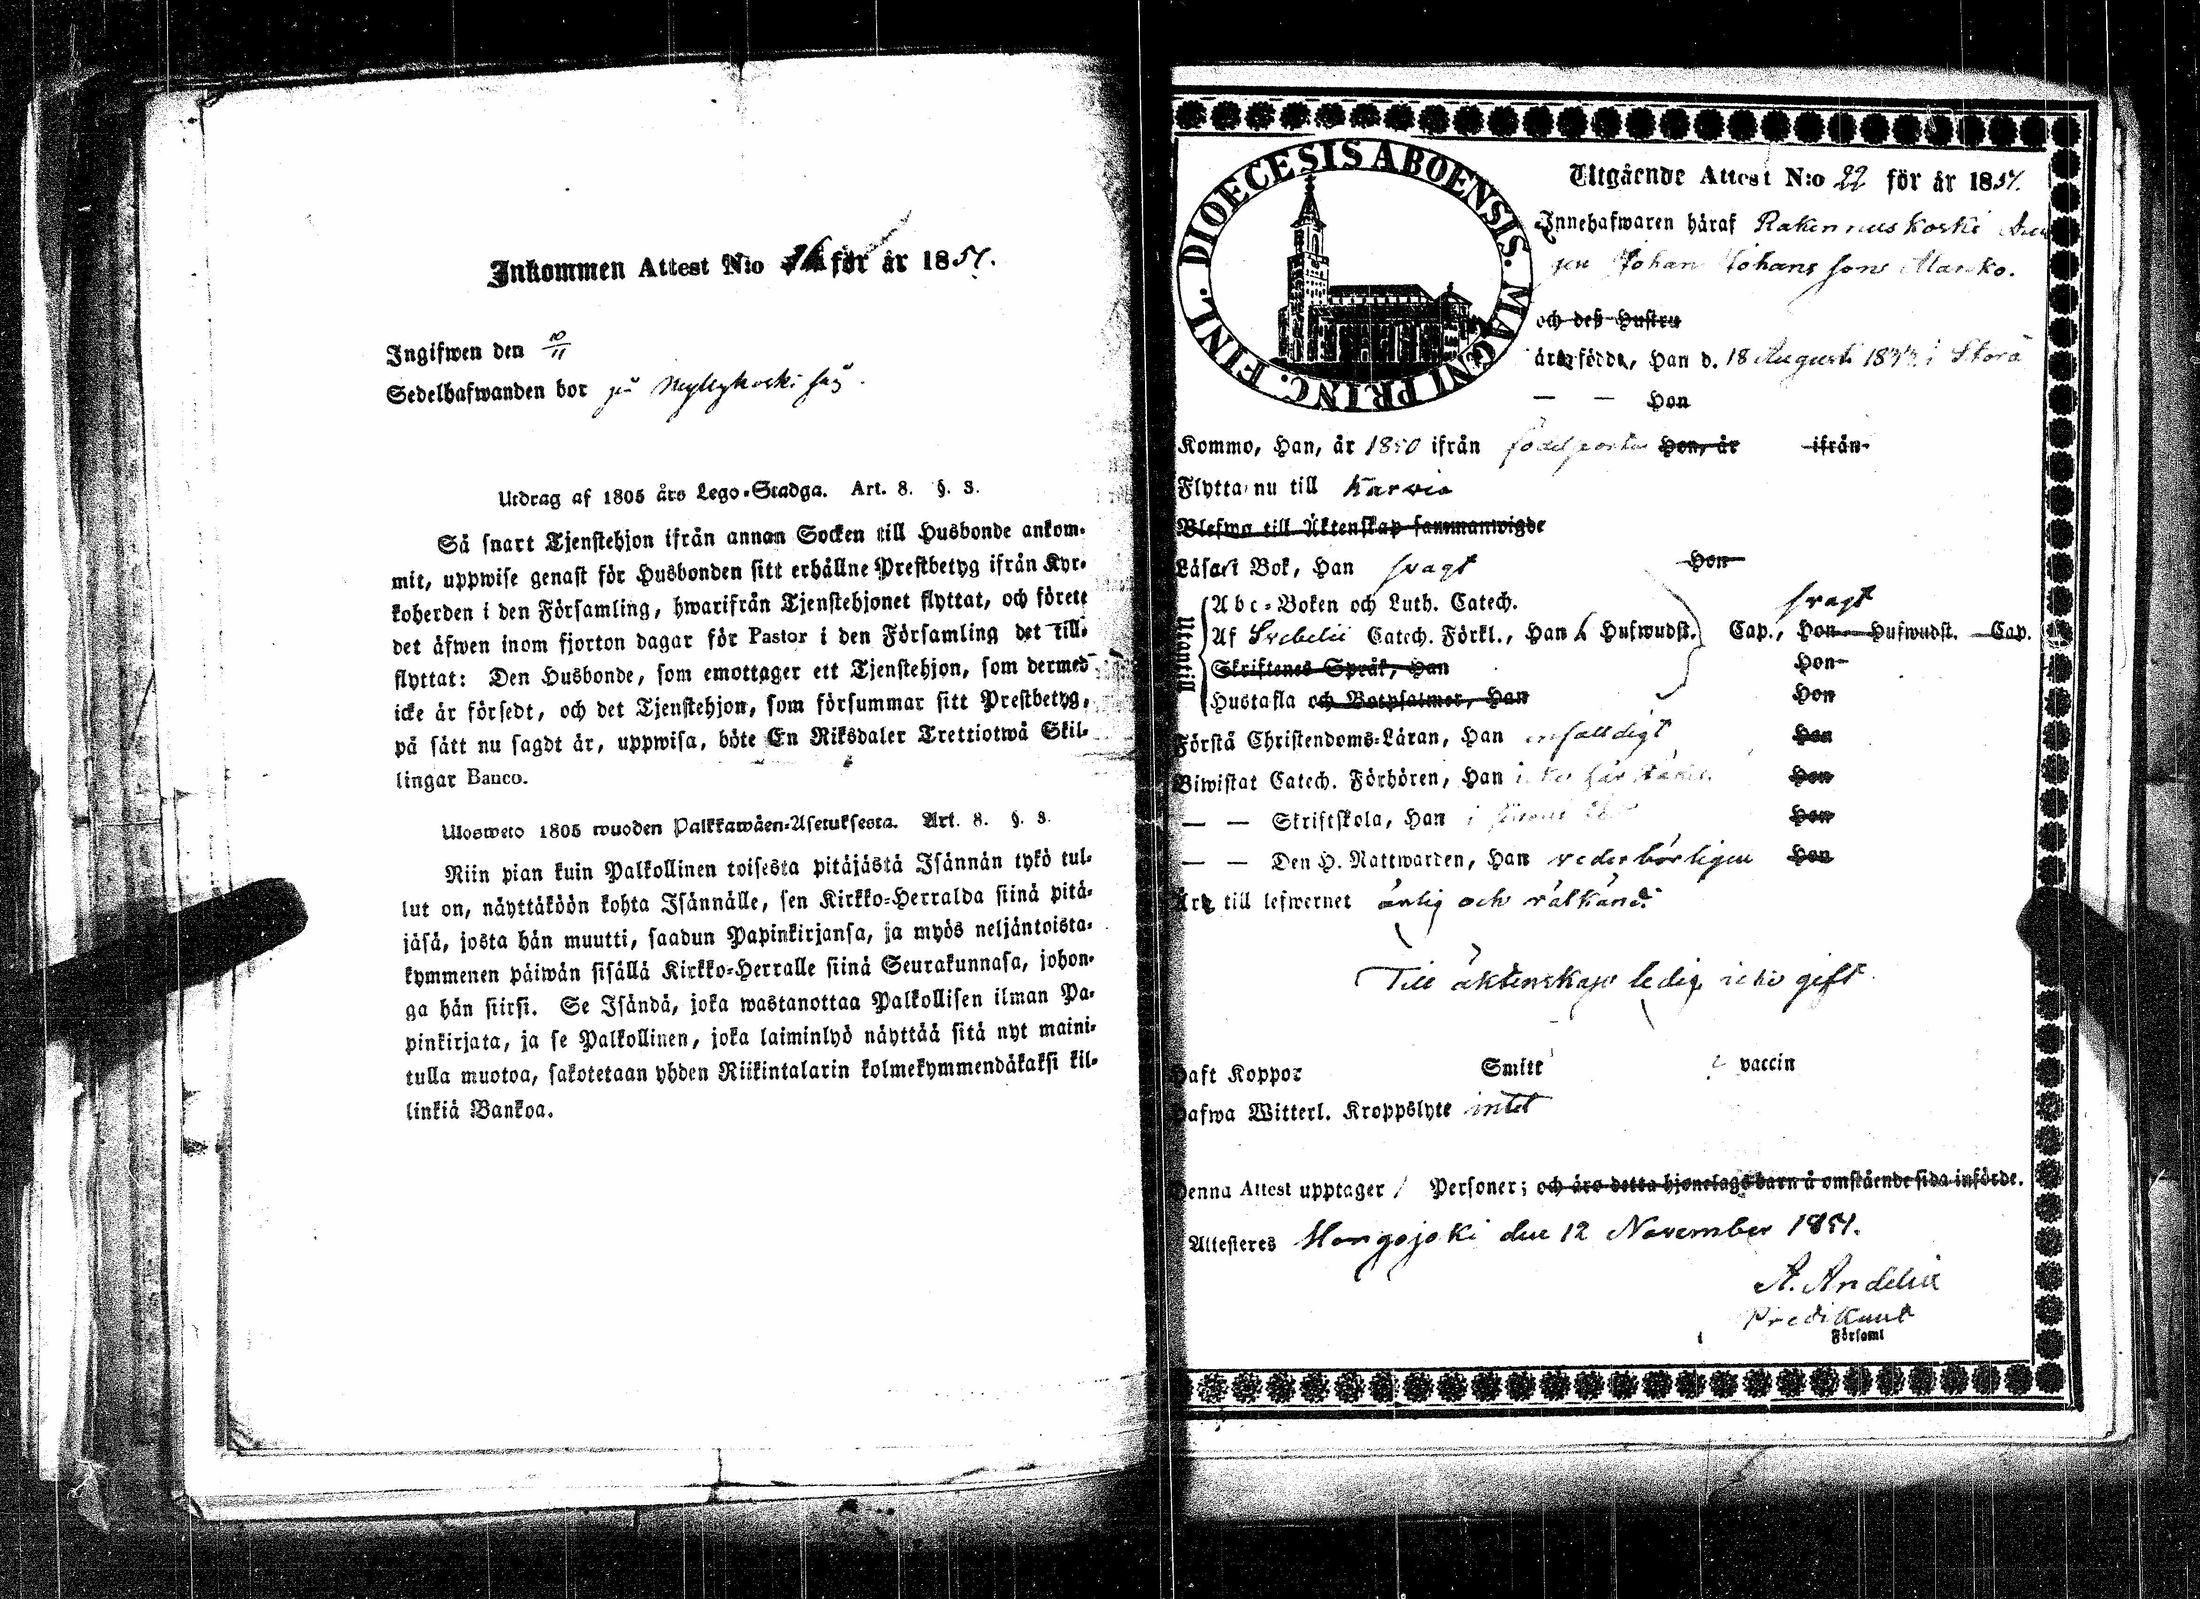 Inkommen Attest N:o för år 1851.
Ingifwen den 10/11
Sedelhafwanden bor på Myllykoski
Utdrag af 1805 års Lego-Stadga. Art. 8. §. 3.
Så snart Tjenstehjon ifrån annan Socken till Husbonde ankom-
mit, uppwise genast för Husbonden sitt erhållne Prestbetyg ifrån Kyr-
koherden i den Församling, hwarifrån Tjenstehjonet flyttat, och förete
det äfwen inom fjorton dagar för Pastor i den Församling det till-
flyttat: Den Husbonde, som emottager ett Tjenstehjon, som dermed
icke är försedt, och det Tjenstehjon, som försummar sitt Prestbetyg,
på sätt nu sagdt är, uppwisa, böte En Riksdaler Trettiotwå Skil-
lingar Banco.
Ulosweto 1805 wuoden Palkkawäen-Asetuksesta. Art. 8. §. 3.
Niin pian kuin Palkollinen toisesta pitäjästä Isännän tykö tul-
lut on, näyttäköön kohta Isännälle, sen Kirkko-Herralda siinä pitä-
jäsä, josta hän muutti, saadun Papinkirjansa, ja myös neljäntoista-
kymmenen päiwän sisällä Kirkko-Herralle siinä Seurakunnasa, johon-
ga hän siirsi. Se Isändä, joka wastanottaa Palkollisen ilman Pa-
pinkirjata, ja se Palkollinen, joka laiminlyö näyttää sitä nyt maini-
tulla muotoa, sakotetaan yhden Riikintalarin kolmekymmendäkaksi kil-
linkiä Bankoa.
DIOECESIS ABOENSIS. MAGNI PRINC. FINL.
Utgående Attest N:o 22 för år 1851.
Innehafwaren häraf Rakennuskoski
Johan Johansson
och deß Hustru
äro födde, Han d. 18 Augusti i Storå
— — Hon
Kommo, Han, år 1850 ifrån födelseorten Hon, år ifrån
Flytta nu till Karvia
Blefwo till Äktenskap sammanwigde
Läsart Bok, Han svagt Hon
Utantill
Abc-Boken och Luth. Catech. svagt
Af Svebelii Catech. Förkl., Han 6 Hufwudst. Cap., Hon Hufwudst. Cap.
Skriftenes Språk, Han Hon
Hustafla och Botpsalmer, Han Hon
Förstå Christendoms-Läran, Han enfaldigt Hon
Biwistat Catech. Förhören, Han Hon
— — Skriftskola, Han Hon
— — Den H. Nattwarden, Han vederbörligen Hon
Äro till lefwernet ärlig och välkänd.
Till äktenskap ledig icke gift.
Haft Koppor Smitt vaccin
Hafwa Witterl. Kroppslyte intet
Denna Attest upptager 1 Personer; och äro detta hjonelags barn å omstående sida införde.
Attesteres Hongojoki den 12 November 1851.
A. Andelin
Predikant
Församl